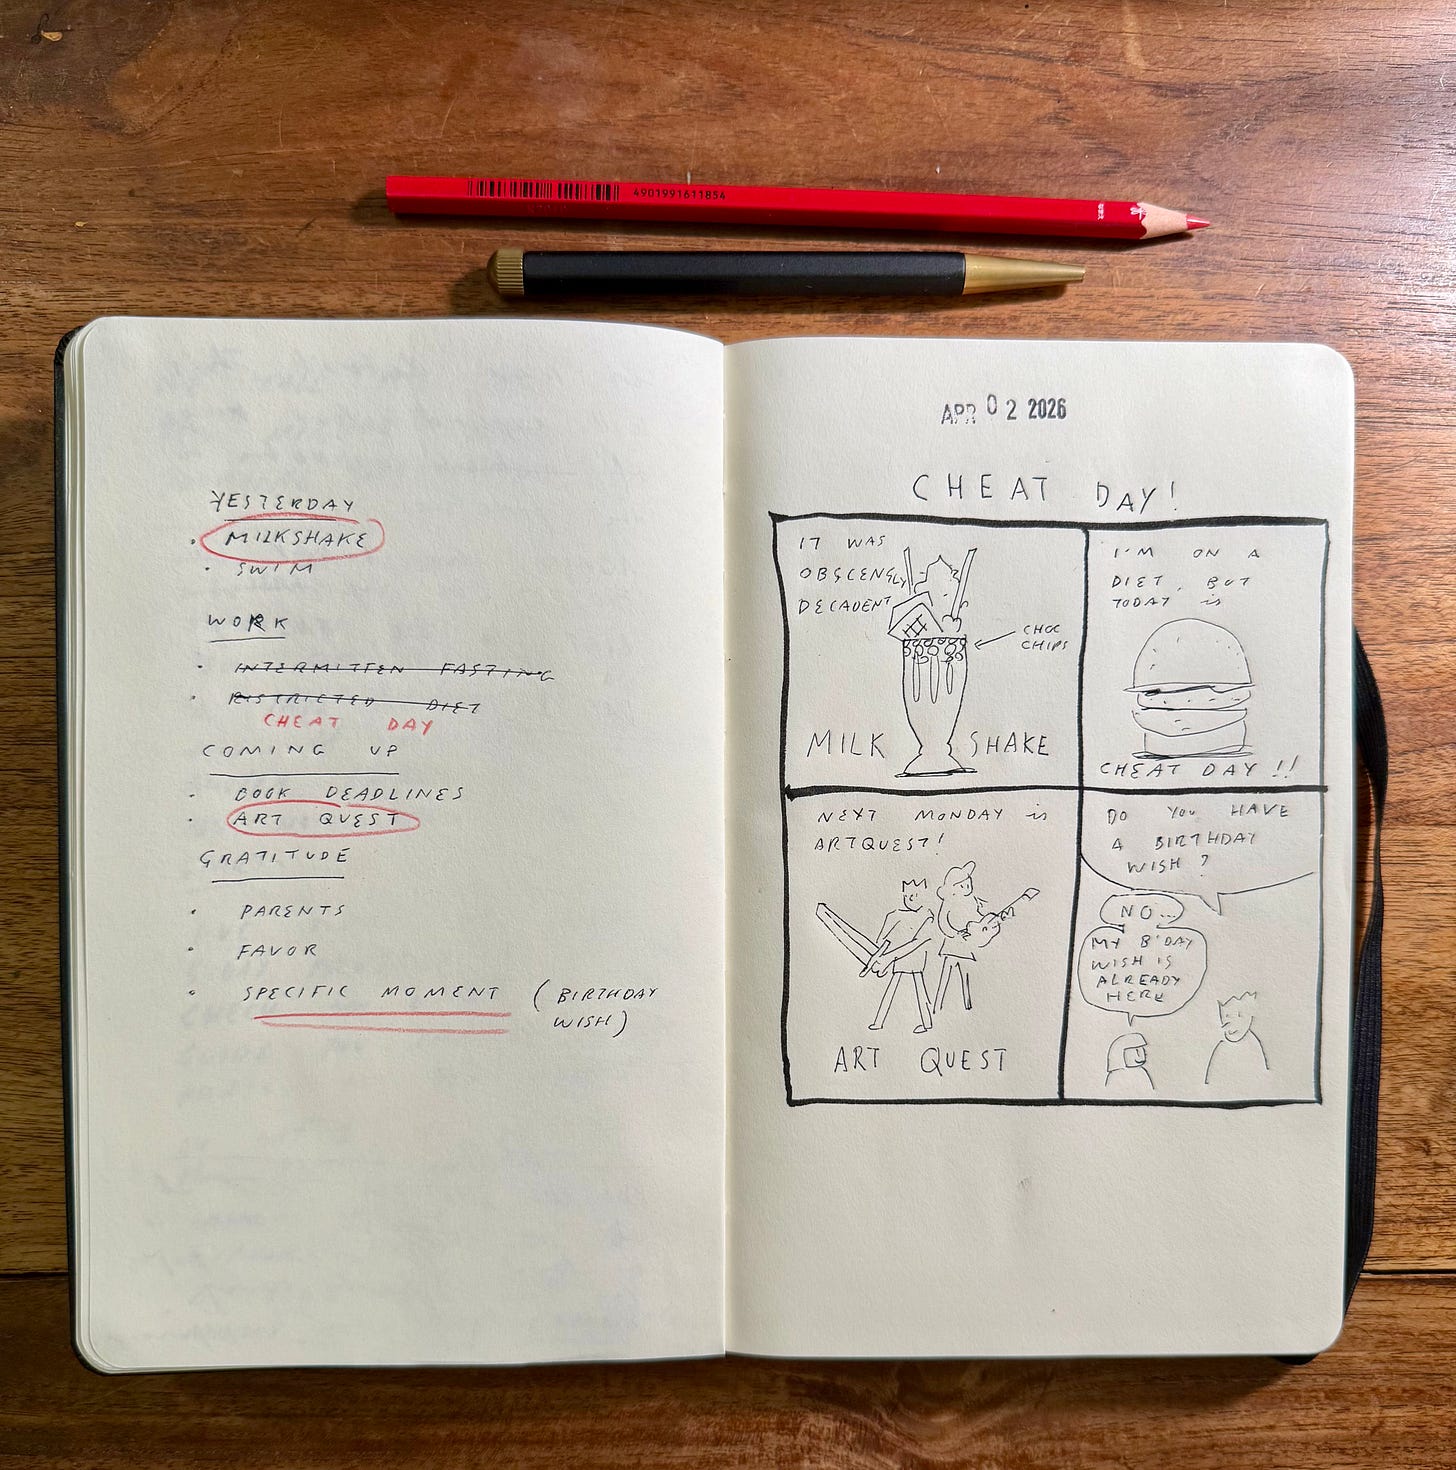 4901991611854
YESTERDAY
• MILKSHAKE
• SWIM
WORK
• INTERMITTEN FASTING
• RISTRICTED DIET
CHEAT DAY
COMING UP
• BOOK DEADLINES
• ART QUEST
GRATITUDE
• PARENTS
• FAVOR
• SPECIFIC MOMENT (BIRTHDAY
WISH)
APR 02 2026
CHEAT DAY!
IT WAS
OBSCENELY
DECADENT
CHOC
CHIPS
MILK SHAKE
I'M ON A
DIET, BUT
TODAY is
CHEAT DAY!!
NEXT MONDAY is
ARTQUEST!
ART QUEST
DO YOU HAVE
A BIRTHDAY
WISH?
NO...
MY B'DAY
WISH IS
ALREADY
HERE